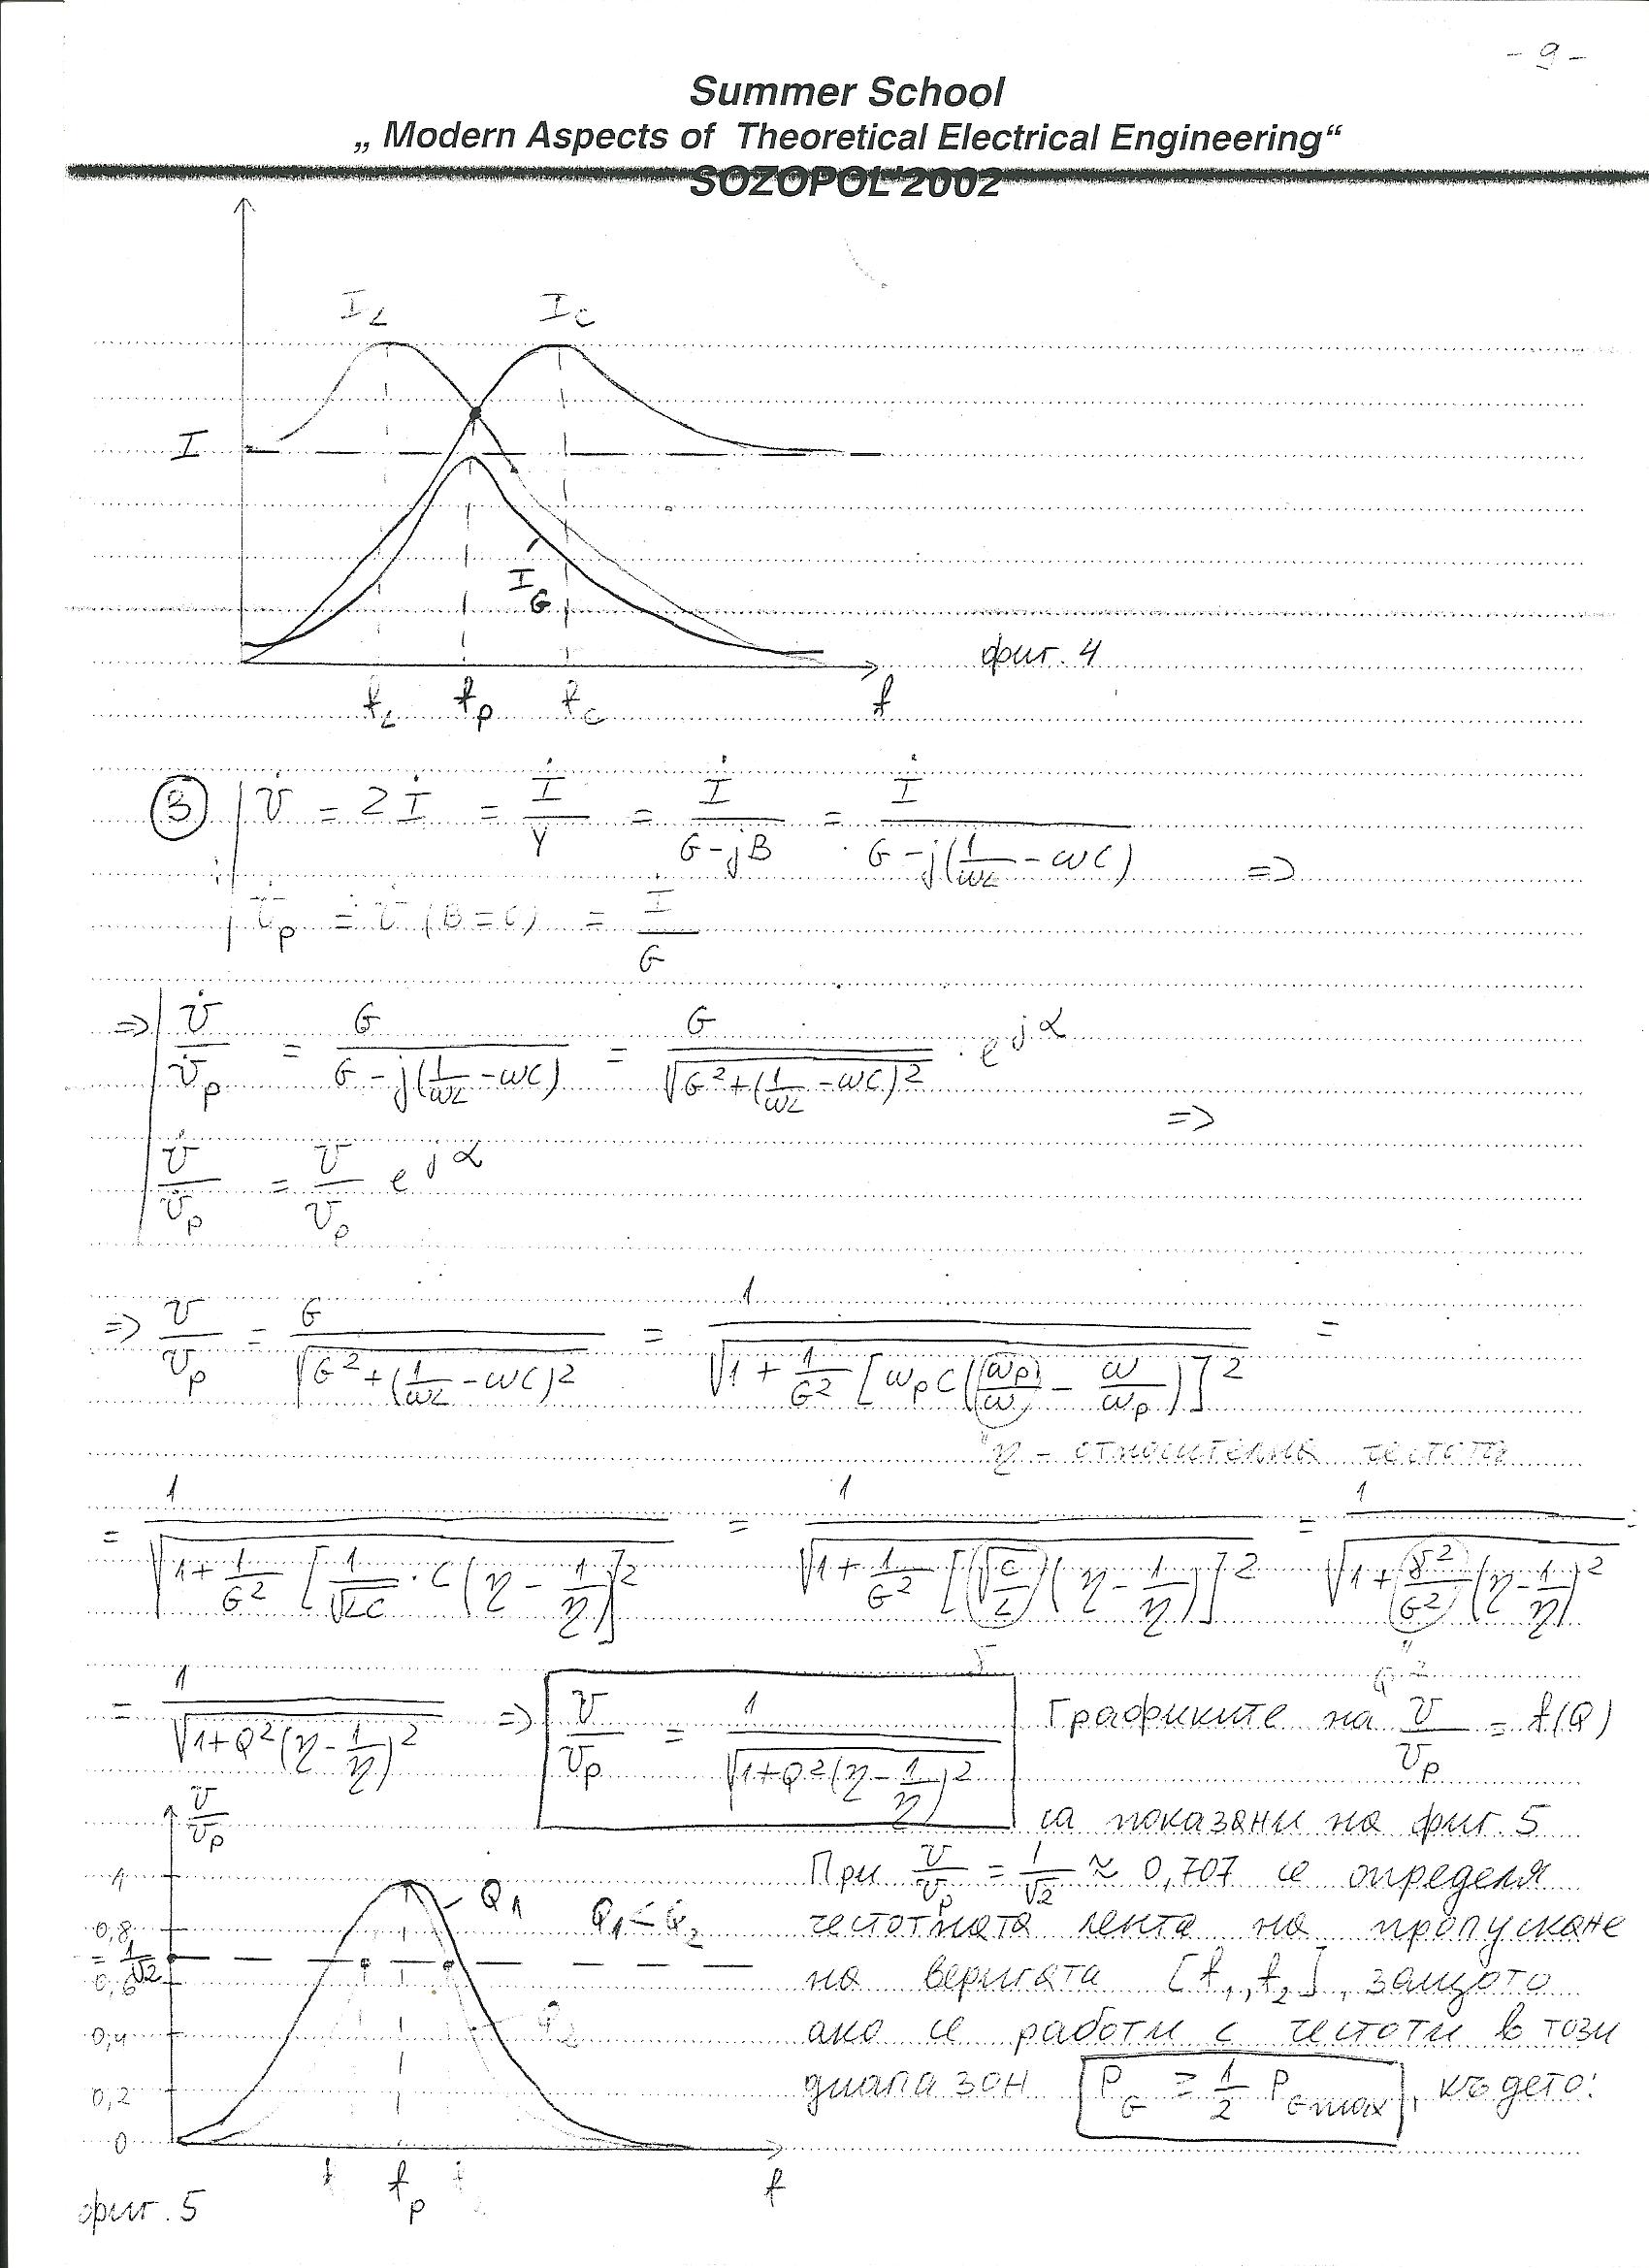 - 9 -
Summer School
„ Modern Aspects of Theoretical Electrical Engineering“
SOZOPOL'2002
I_L I_C
I
I_G
фиг. 4
f_L f_p f_C f
③ U̇ = Zİ = İ/Y = İ/(G-jB) = İ/(G-j(1/ωL - ωC)) =>
U̇_p = U̇(B=0) = İ/G
=> U̇/U̇_p = G/(G-j(1/ωL - ωC)) = G/√(G²+(1/ωL - ωC)²) · e^jα =>
U̇/U̇_p = U/U_p e^jα
=> U/U_p = G/√(G²+(1/ωL - ωC)²) = 1/√(1+1/G² [ω_pC(ω_p/ω - ω/ω_p)]²) =
η - относителна честота
= 1/√(1+1/G² [1/√LC · C(η - 1/η)]²) = 1/√(1+1/G² [√(C/L)(η - 1/η)]²) = 1/√(1+γ²/G² (η - 1/η)²) =
γ Q²
= 1/√(1+Q²(η - 1/η)²) => U/U_p = 1/√(1+Q²(η - 1/η)²) Графиките на U/U_p = f(Q)
са показани на фиг. 5
U/U_p
При U/U_p = 1/√2 ≈ 0,707 се определя
1 Q₁ Q₁ < Q₂
0,8
честотната лента на пропускане
= 1/√2
0,6
на веригата [f₁, f₂], защото
0,4 Q₂
ако се работи с честоти в този
0,2
диапазон P_G ≥ 1/2 P_Gmax, където:
0
f f_p f f
фиг. 5